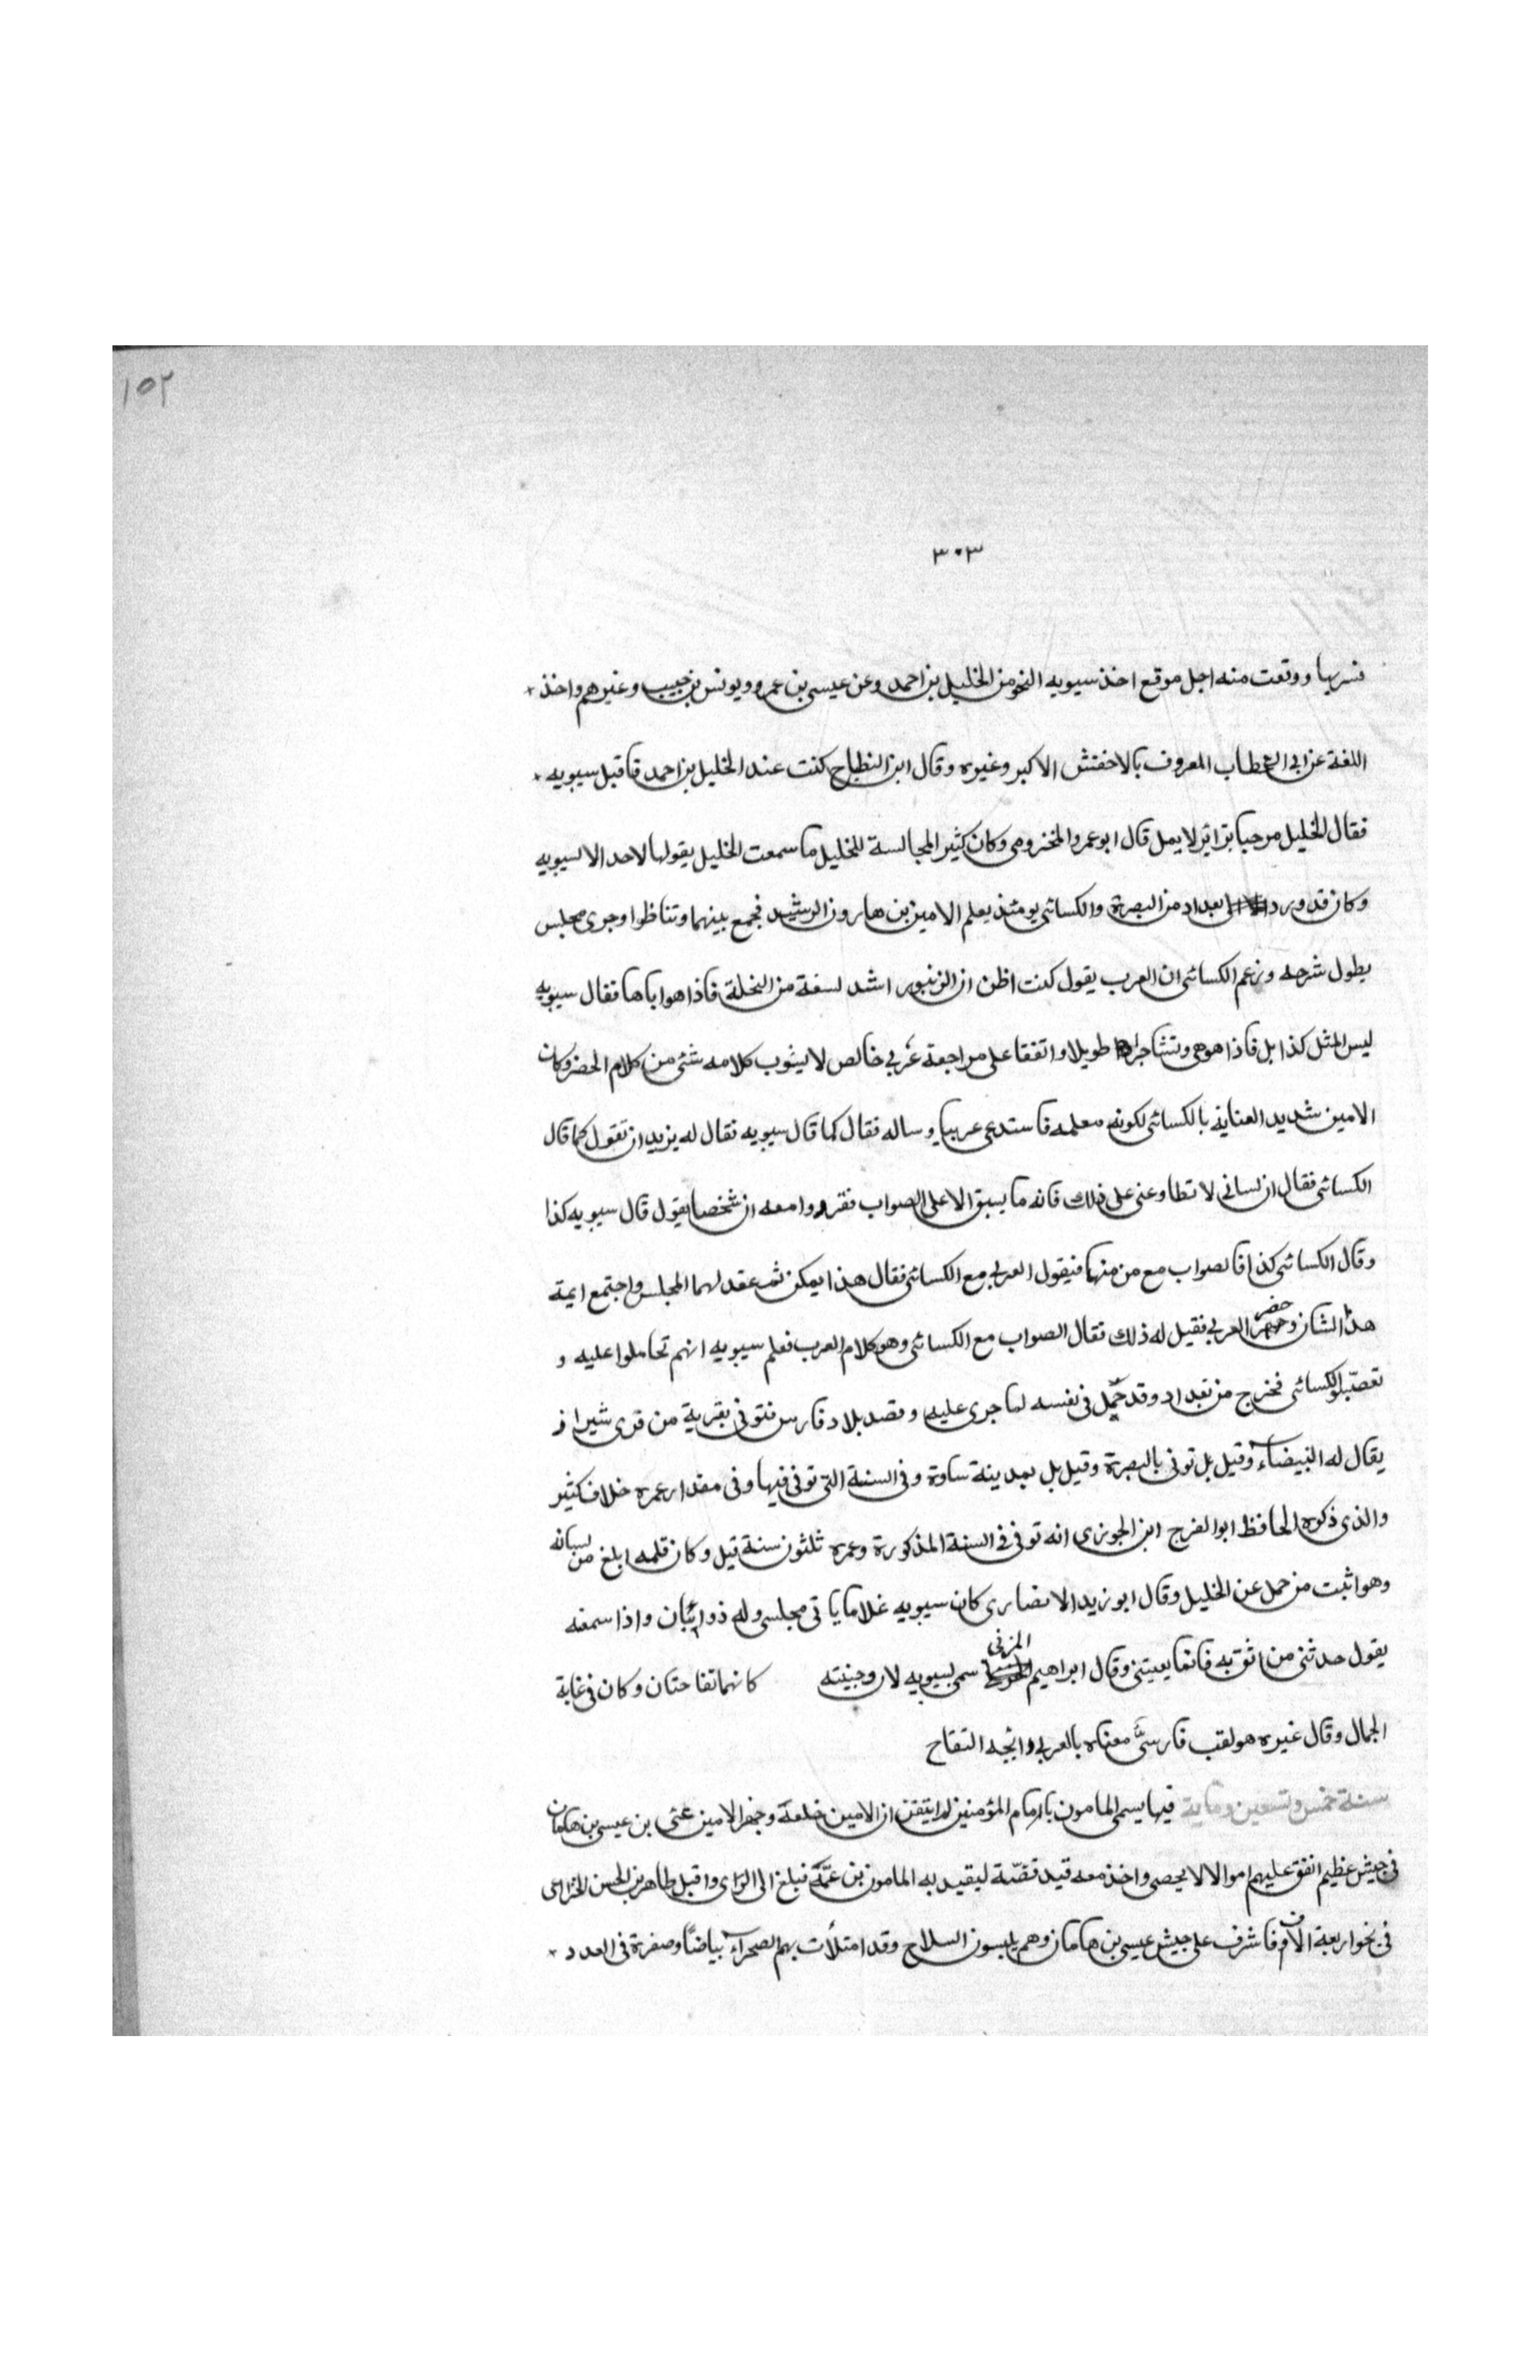 ١٥٢
٣٠٣
فسربها ووقعت منه اجل موقع اخذ سيبويه النحو من الخليل بن احمد وعن عيسى بن عمرو ويونس بن حبيب وغيرهم واخذ
اللغة عن ابي الخطاب المعروف بالاخفش الاكبر وغيره وقال ابن النطاح كنت عند الخليل بن احمد فاقبل سيبويه
فقال الخليل مرحبا بزائر لا يمل قال ابو عمرو المخزومي وكان كثير المجالسة للخليل ما سمعت الخليل يقولها لاحد الا لسيبويه
وكان قد ورد بغداد من البصرة والكسائي يومئذ يعلم الامين بن هارون الرشيد فجمع بينهما وتناظوا وجرى مجلس
يطول شرحه وزعم الكسائي ان العرب يقول كنت اظن ان الزنبور اشد لسعة من النحلة فاذا هو اياها فقال سيبويه
ليس المثل كذا بل فاذا هو هي وتشاجرا طويلا واتفقا على مراجعة عربي خالص لا يشوب كلامه شئ من كلام الحضر وكان
الامين شديد العناية بالكسائي لكونه معلمه فاستدعى عربيا وساله فقال كما قال سيبويه فقال له يزيد ان تقول كما قال
الكسائي فقال ان لساني لا تطاوعني على ذلك فانه ما يسبق الا على الصواب فقرروا معه ان شخصا يقول قال سيبويه كذا
وقال الكسائي كذا فالصواب مع من منهما فيقول العربي مع الكسائي فقال هذا يمكن ثم عقد لهما المجلس واجتمع ايمة
هذا الشان وحضر العربي فقيل له ذلك فقال الصواب مع الكسائي وهو كلام العرب فعلم سيبويه انهم تحاملوا عليه و
تعصبوا للكسائي فخرج من بغداد وقد حمل في نفسه لما جرى عليه وقصد بلاد فارس فتوفى بقرية من قرى شيراز
يقال له البيضاء وقيل بل توفى بالبصرة وقيل بل بمدينة ساوة وفي السنة التي توفي فيها وفي مقدار عمره خلاف كثير
والذي ذكره الحافظ ابو الفرج ابن الجوزي انه توفي في السنة المذكورة وعمره ثلثون سنة قيل وكان قلمه ابلغ من لسانه
وهو اثبت من حمل عن الخليل وقال ابو زيد الانصاري كان سيبويه غلاما ياتي مجلسي وله ذوائبان واذا سمعته
يقول حدثني من اثق به فانما يعيتني وقال ابراهيم المزني سمى لسيبويه لان وجنيته كانهما تفاحتان وكان في غاية
الجمال وقال غيره هو لقب فارسي معناه بالعربي رائحة التفاح
سنة خمس وتسعين وماية فيها يسمى المامون بامام المؤمنين لما تيقن ان الامين خلعه وجهز الامين على بن عيسى بن هامان
في جيش عظيم انفق عليهم اموالا لا يحصى واخذ معه قيد فضة ليقيد به المامون بن عمه فبلغ الى الراى واقبل طاهر بن الحسن الخزاعى
في نحو اربعة الاف فاشرف على جيش عيسى بن هامان وهم يلبسون السلاح وقد امتلأت بهم الصحراء بياضا وصفرة في العدد